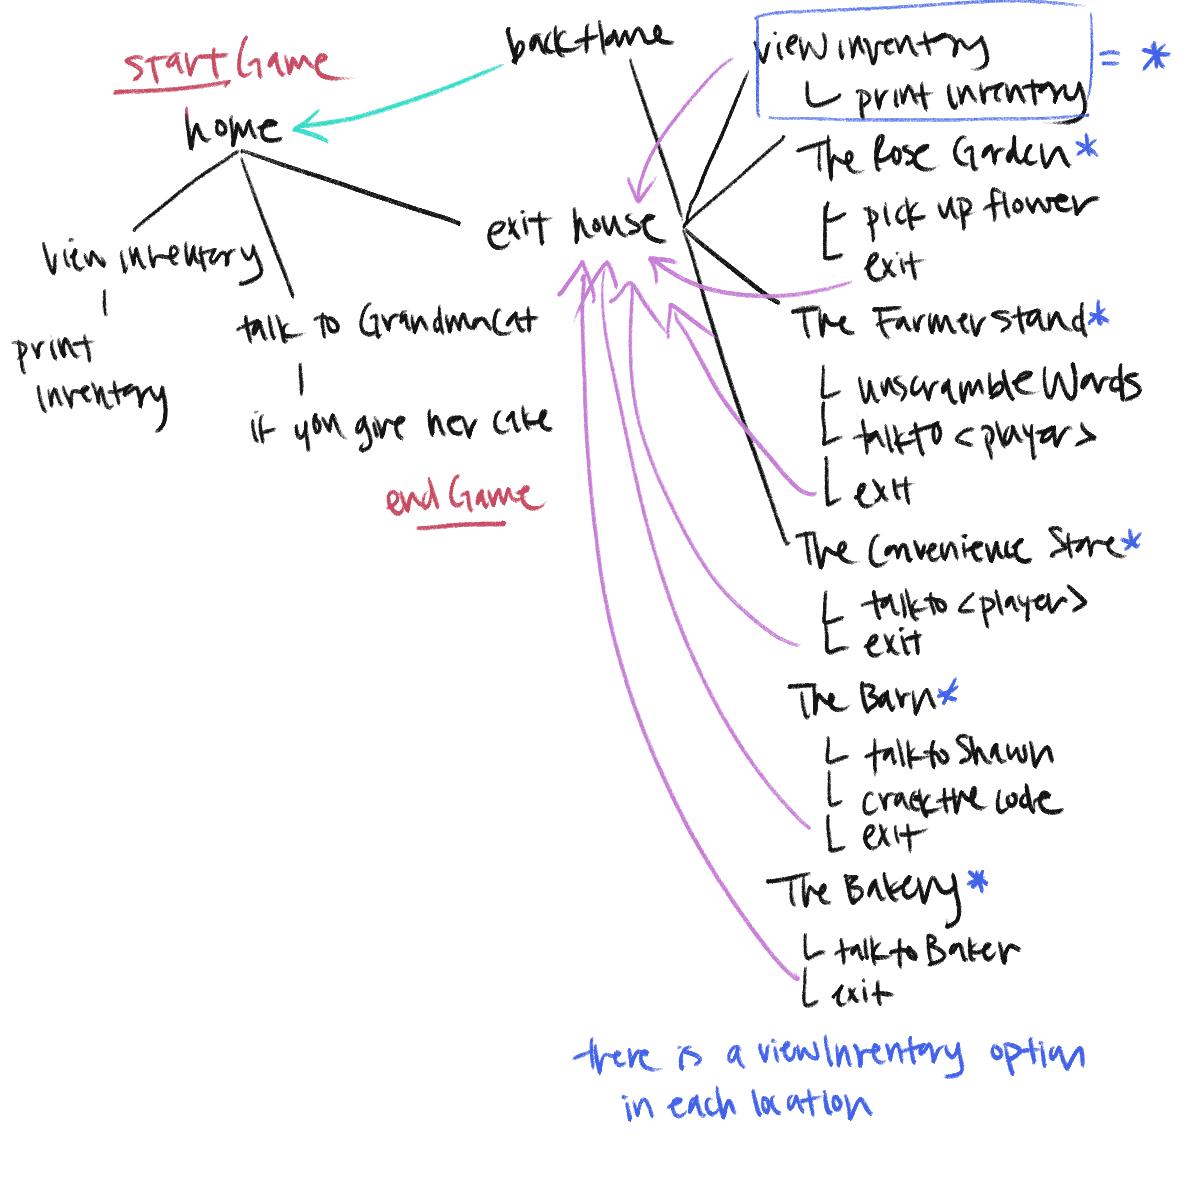 startGame
home
view inventory
print
inventory
talk to Grandmacat
if you give her cake
endGame
back home
exit house
view inventory
print inventory
= *
The Rose Garden *
pick up flower
exit
The Farmerstand *
unscrambleWords
talkto <player>
exit
The Convenience Store *
talkto <player>
exit
The Barn *
talkto Shawn
crackthe code
exit
The Bakery *
talkto Baker
exit
there is a viewInventory option
in each location